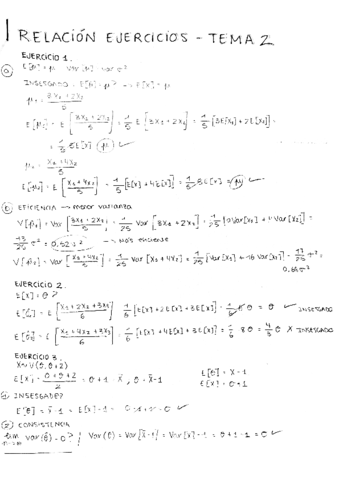 RELACIÓN EJERCICIOS - TEMA 2
EJERCICIO 1.
a) E[μ̂] = μ Var[μ̂]
INSESGADO: E[μ̂] = μ? → E[x̄] = μ
μ̂₁ = (3X₁ + 2X₂)/5
E[μ̂₁] = E[(3X₁ + 2X₂)/5] = 1/5 E[3X₁ + 2X₂] = 1/5 [3E[X₁] + 2E[X₂]] =
= 1/5 5E[X] = μ ✓
μ̂₂ = (X₁ + 4X₂)/5
E[μ̂₂] = E[(X₁ + 4X₂)/5] = 1/5 [E[X] + 4E[X]] = 1/5 5E[X] = μ ✓
b) EFICIENCIA → menor varianza
V[μ̂₁] = Var[(3X₁ + 2X₂)/5] = 1/25 Var[3X₁ + 2X₂] = 1/25 [9Var[X₁] + 4Var[X₂]] =
13/25 σ² = 0.52σ² → Más eficiente
V[μ̂₂] = Var[(X₁ + 4X₂)/5] = 1/25 Var[X₁ + 4X₂] = 1/25 [Var[X₁] + 16 Var[X₂]] = 17/25 σ² =
0.68σ²
EJERCICIO 2.
E[X] = θ ?
E[θ̂₁] = E[(X₁ + 2X₂ + 3X₃)/6] = 1/6 [E[X] + 2E[X] + 3E[X]] = 1/6 6θ = θ ✓ INSESGADO
E[θ̂₂] = E[(X₁ + 4X₂ + 3X₃)/6] = 1/6 [E[X] + 4E[X] + 3E[X]] = 1/6 8θ = 4/3 θ X INSESGADO
EJERCICIO 3.
X~U(θ, θ+2)
E[X] = (θ + θ + 2)/2 = θ + 1 x̄, θ = x̄ - 1 E[θ̂] = x̄ - 1
E[X] = θ + 1
a) INSESGADE?
E[θ̂] = x̄ - 1 = E[X] - 1 = θ + 1 - 1 = θ ✓
b) CONSISTENCIA
lim Var(θ̂) = 0? / Var(θ̂) = Var[x̄ - 1] = Var[X] - 1 = θ + 1 - 1 = θ ✓